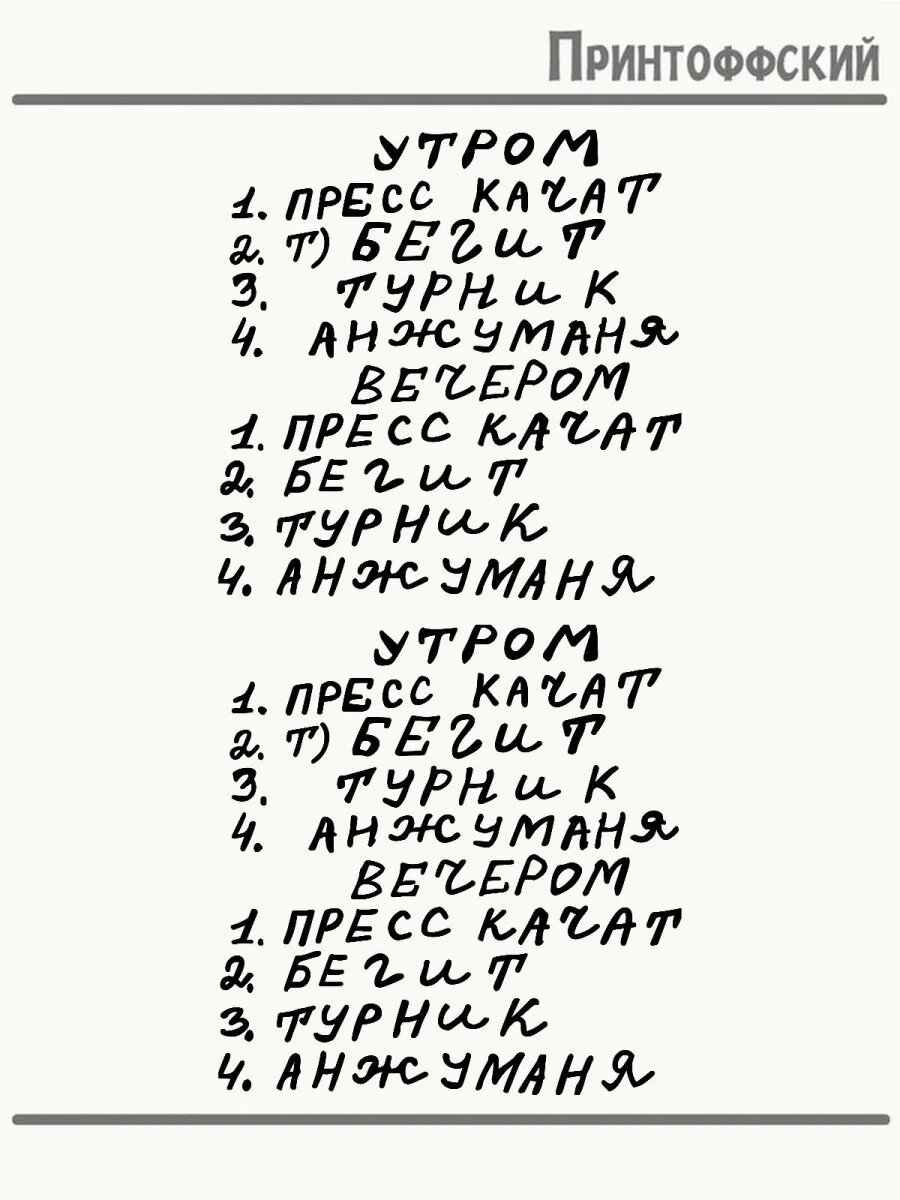 Принтоффский
УТРОМ
1. ПРЕСС КАЧАТ
2. Т) БЕГИТ
3. ТУРНИК
4. АНЖУМАНЯ
ВЕЧЕРОМ
1. ПРЕСС КАЧАТ
2. БЕГИТ
3. ТУРНИК
4. АНЖУМАНЯ
УТРОМ
1. ПРЕСС КАЧАТ
2. Т) БЕГИТ
3. ТУРНИК
4. АНЖУМАНЯ
ВЕЧЕРОМ
1. ПРЕСС КАЧАТ
2. БЕГИТ
3. ТУРНИК
4. АНЖУМАНЯ